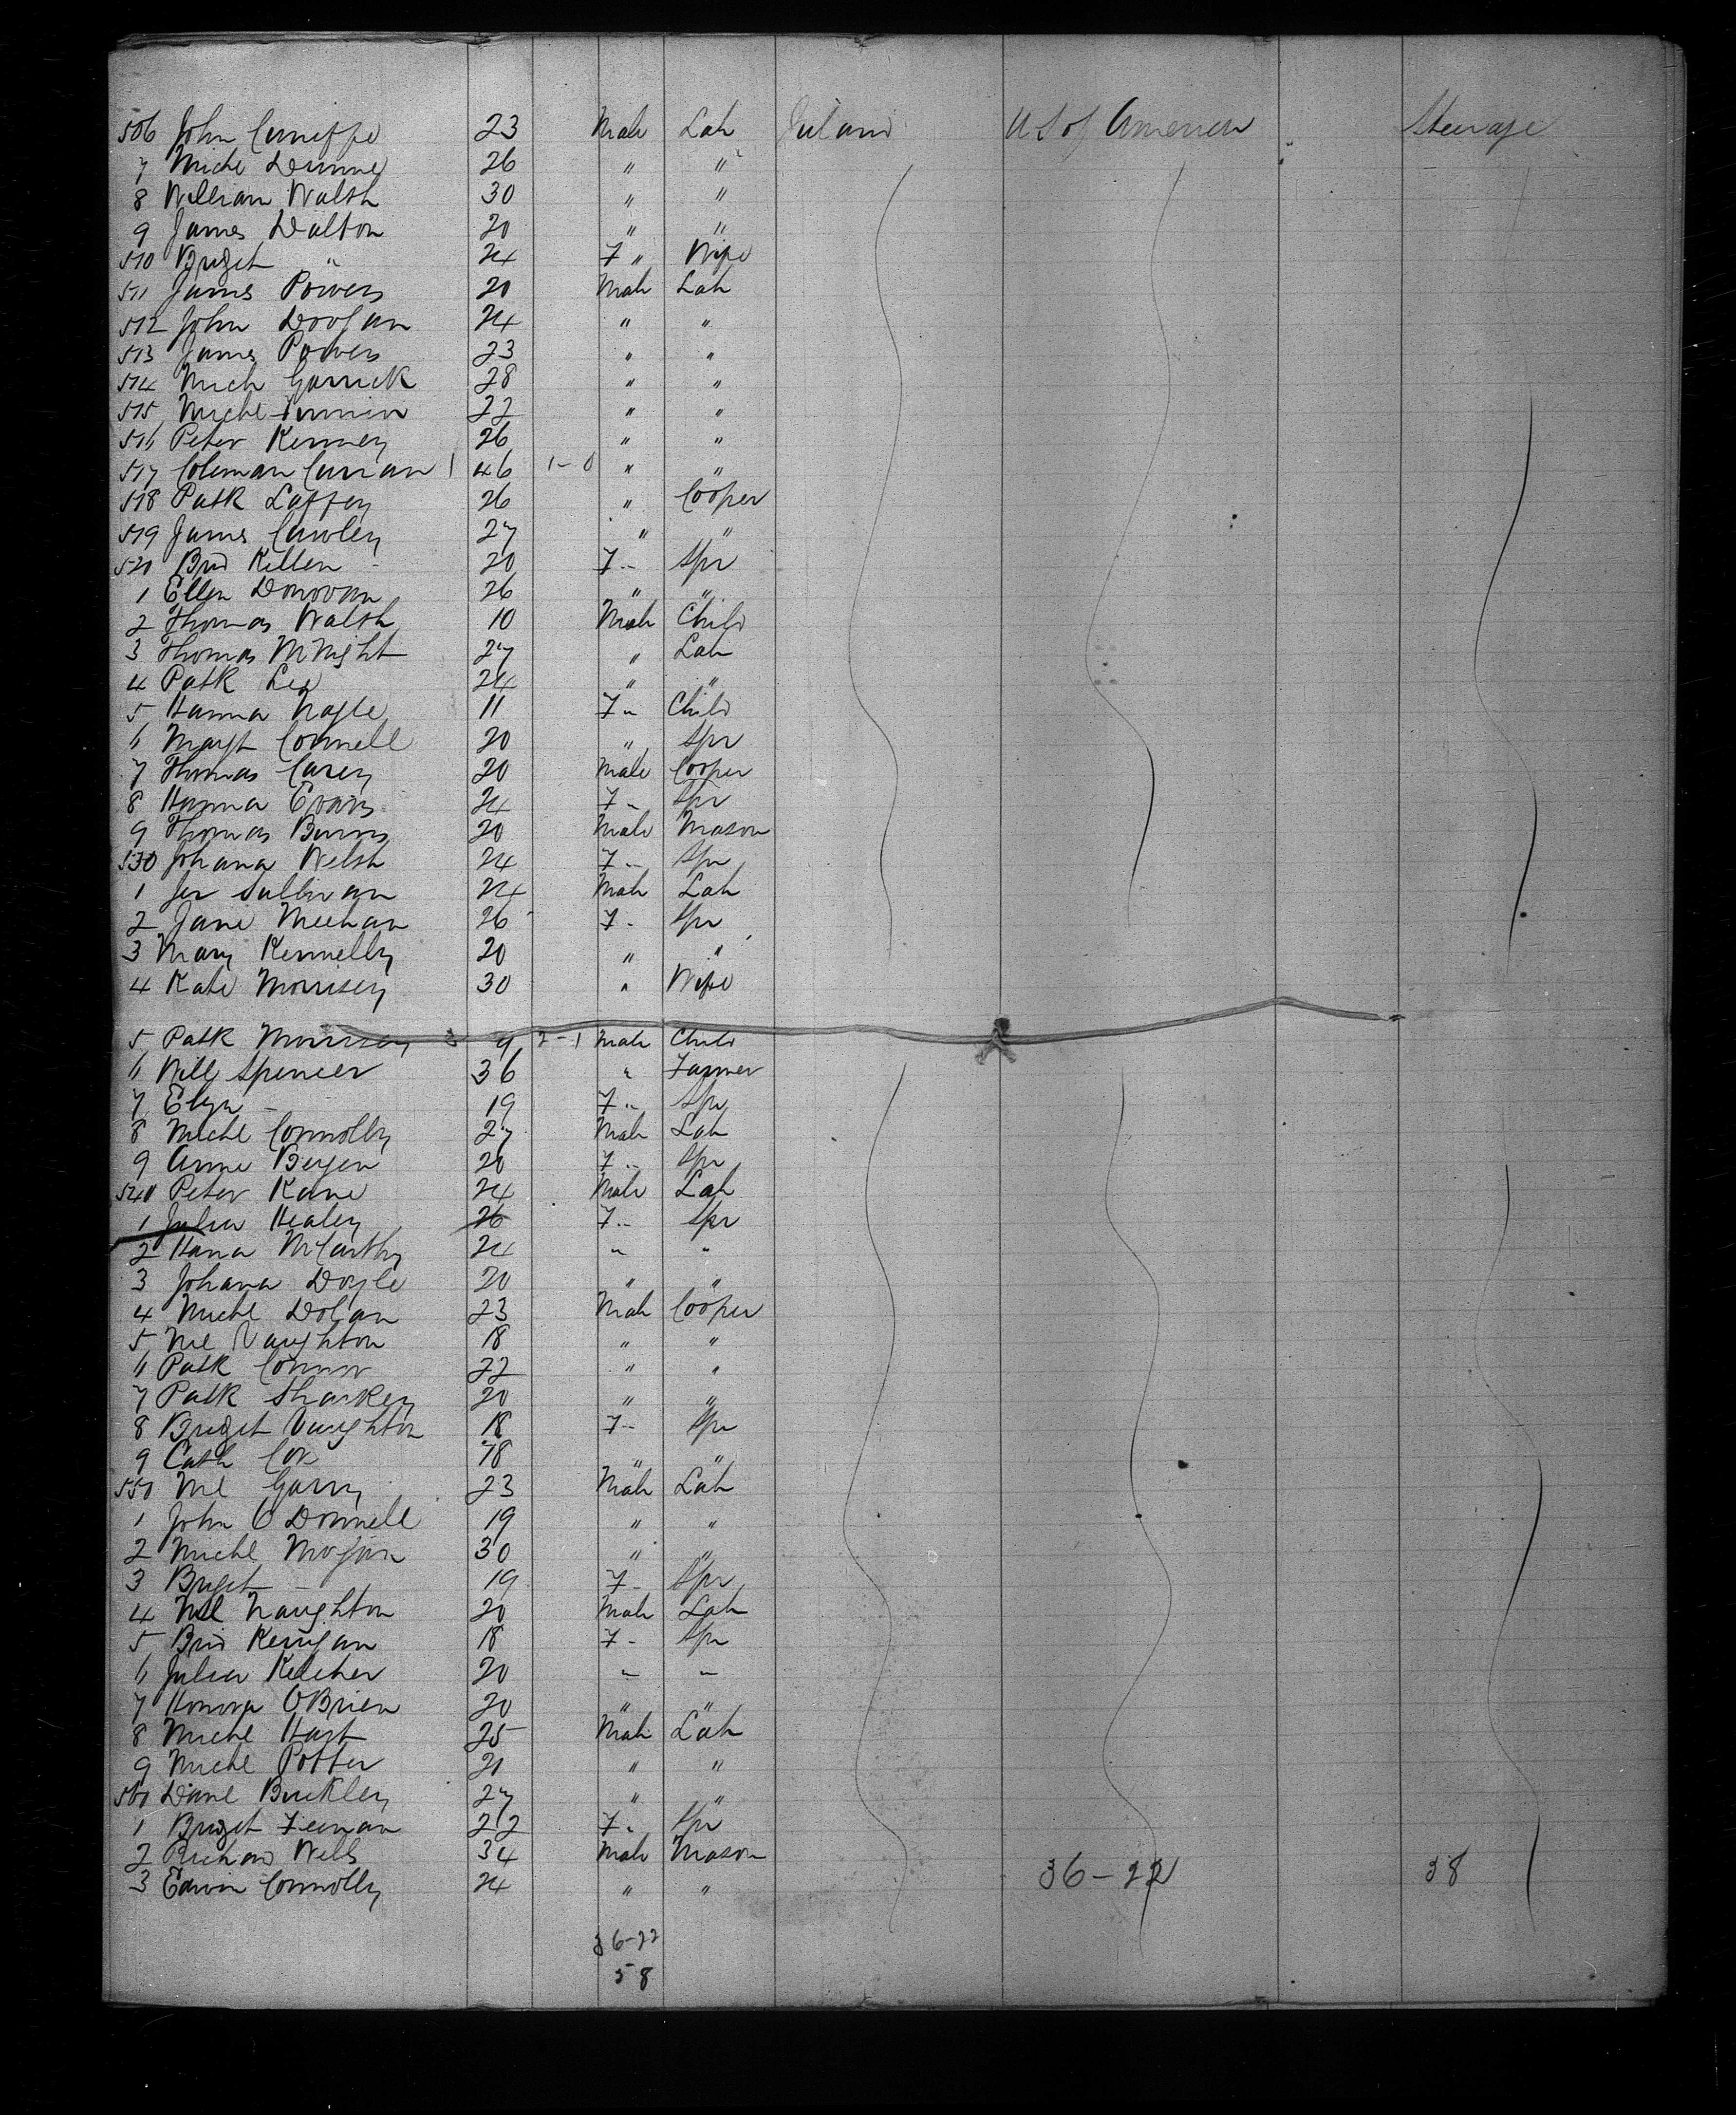 506 John Cuniffe 23 Male Lab Ireland U S of America Steerage
7 Michl Dunne 26 " "
8 William Walsh 30 " "
9 James Dalton 20 " "
510 Bridget " 24 F " Wife
511 James Powers 20 Male Lab
512 John Doogan 24 " "
513 James Powers 23 " "
514 Mich Garrick 28 " "
515 Michl 22 " "
516 Peter Kenney 26 " "
517 Coleman Curran 1 46 1-0 " "
518 Patk Laffey 26 " Cooper
519 James Cawley 27 " "
520 Brid Killen 20 F " Spr
1 Ellen Donovan 26 " "
2 Thomas Walsh 10 Male Child
3 Thomas McNight 27 " Lab
4 Patk Lee 24 " "
5 Hanna Nagle 11 F " Child
6 Margt Connell 20 " Spr
7 Thomas Carey 20 Male Cooper
8 Hanna Evans 24 F " Spr
9 Thomas Burns 20 Male Mason
530 Johana Welsh 24 F " Spr
1 Jer Sullivan 24 Male Lab
2 Jane Meehan 26 F " Spr
3 Mary Kennelly 20 " "
4 Kate Morrisey 30 " Wife
5 Patk Morrisey 3 9 2-1 Male Child
6 Will Spencer 36 " Farmer
7 Eliza - 19 F " Spr
8 Michl Connolly 27 Male Lab
9 Anne Bergen 20 F " Spr
540 Peter Kane 24 Male Lab
1 Julia Healey 26 F " Spr
2 Hana McCarthy 24 " "
3 Johana Doyle 20 " "
4 Michl Dolan 23 Male Cooper
5 Ml Naughton 18 " "
6 Patk Connor 22 " "
7 Patk Sharkey 20 " "
8 Bridget Naughton 18 F " Spr
9 Cath Cox 18 " "
550 Ml Garry 23 Male Lab
1 John O Donnell 19 " "
2 Michl Mogan 30 " "
3 Bridget - 19 F " Spr
4 Ml Naughton 20 Male Lab
5 Brid Kerrigan 18 F " Spr
6 Julia Keleher 20 " "
7 Honora OBrien 20 " "
8 Michl Hart 25 Male Lab
9 Michl Potter 21 " "
560 Danl Buckley 27 " "
1 Bridget Feenan 22 F " Spr
2 Richard Wells 34 Male Mason
3 Edwin Connolly 24 " " 36-22 58
36-22
58